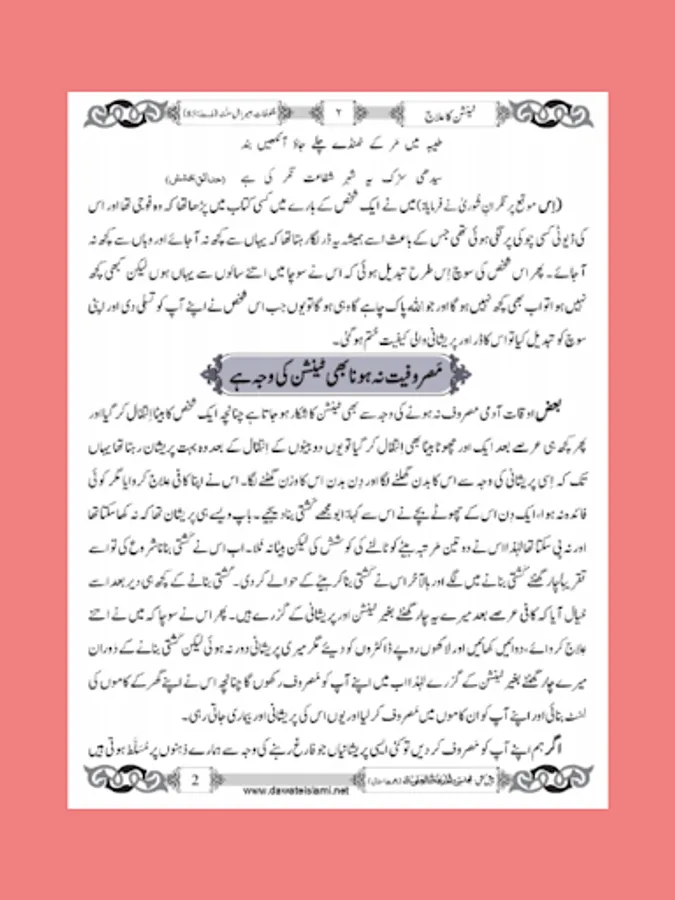 ٹینشن کا علاج ۲ ملفوظات امیر اہل سنت
طیبہ میں مر کے ٹھنڈے چلے جاؤ آنکھیں بند
سیدھی سڑک یہ شہرِ شفاعت نگر کی ہے (حدائق بخشش)
(اِس موقع پر نگرانِ شُوریٰ نے فرمایا:) میں نے ایک شخص کے بارے میں کسی کتاب میں پڑھا تھا کہ وہ فوجی تھا اور اس
کی ڈیوٹی کسی چوکی پر لگی ہوئی تھی جس کے باعث اسے ہمیشہ یہ ڈر لگا رہتا تھا کہ یہاں سے کچھ نہ آجائے اور وہاں سے کچھ نہ
آجائے۔ پھر اس شخص کی سوچ اِس طرح تبدیل ہوئی کہ اس نے سوچا میں اتنے سالوں سے یہاں ہوں لیکن کبھی کچھ
نہیں ہوا تو اب بھی کچھ نہیں ہو گا اور جو اللہ پاک چاہے گا وہی ہو گا تو یوں جب اس شخص نے اپنے آپ کو تسلی دی اور اپنی
سوچ کو تبدیل کیا تو اس کا ڈر اور پریشانی والی کیفیت ختم ہو گئی۔
مَصروفیت نہ ہونا بھی ٹینشن کی وجہ ہے
بعض اوقات آدمی مصروف نہ ہونے کی وجہ سے بھی ٹینشن کا شکار ہو جاتا ہے چنانچہ ایک شخص کا بیٹا اِنتقال کر گیا اور
پھر کچھ ہی عرصے بعد ایک اور چھوٹا بیٹا بھی انتقال کر گیا تو یوں دو بیٹوں کے انتقال کے بعد وہ بہت پریشان رہتا تھا یہاں
تک کہ اِسی پریشانی کی وجہ سے اس کا بدن گھلنے لگا اور دِن بدن اس کا وزن گھٹنے لگا۔ اس نے اپنا کافی علاج کروایا مگر کوئی
فائدہ نہ ہوا، ایک دِن اس کے چھوٹے بچے نے اس سے کہا: ابو مجھے کشتی بنا دیجیے۔ باپ ویسے ہی پریشان تھا کہ نہ کھا سکتا تھا
اور نہ پی سکتا تھا لہٰذا اس نے دو تین مرتبہ بیٹے کو ٹالنے کی کوشش کی لیکن بیٹا نہ ٹلا۔ اب اس نے کشتی بنانا شروع کی تو اسے
تقریباً چار گھنٹے کشتی بنانے میں لگے اور بالآخر اس نے کشتی بنا کر بیٹے کے حوالے کر دی۔ کشتی بنانے کے کچھ ہی دیر بعد اسے
خیال آیا کہ کافی عرصے بعد میرے یہ چار گھنٹے بغیر ٹینشن اور پریشانی کے گزرے ہیں۔ پھر اس نے سوچا کہ میں نے اتنے
علاج کروائے، دوائیں کھائیں اور لاکھوں روپے ڈاکٹروں کو دیئے مگر میری پریشانی دور نہ ہوئی لیکن کشتی بنانے کے دَوران
میرے چار گھنٹے بغیر ٹینشن کے گزرے لہٰذا اب میں اپنے آپ کو مَصروف رکھوں گا چنانچہ اس نے اپنے گھر کے کاموں کی
لسٹ بنائی اور اپنے آپ کو ان کاموں میں مَصروف کر لیا اور یوں اس کی پریشانی اور بیماری جاتی رہی۔
اگر ہم اپنے آپ کو مَصروف کر دیں تو کئی ایسی پریشانیاں جو فارغ رہنے کی وجہ سے ہمارے ذہنوں پر مُسَلَّط ہوتی ہیں
2 www.dawateislami.net